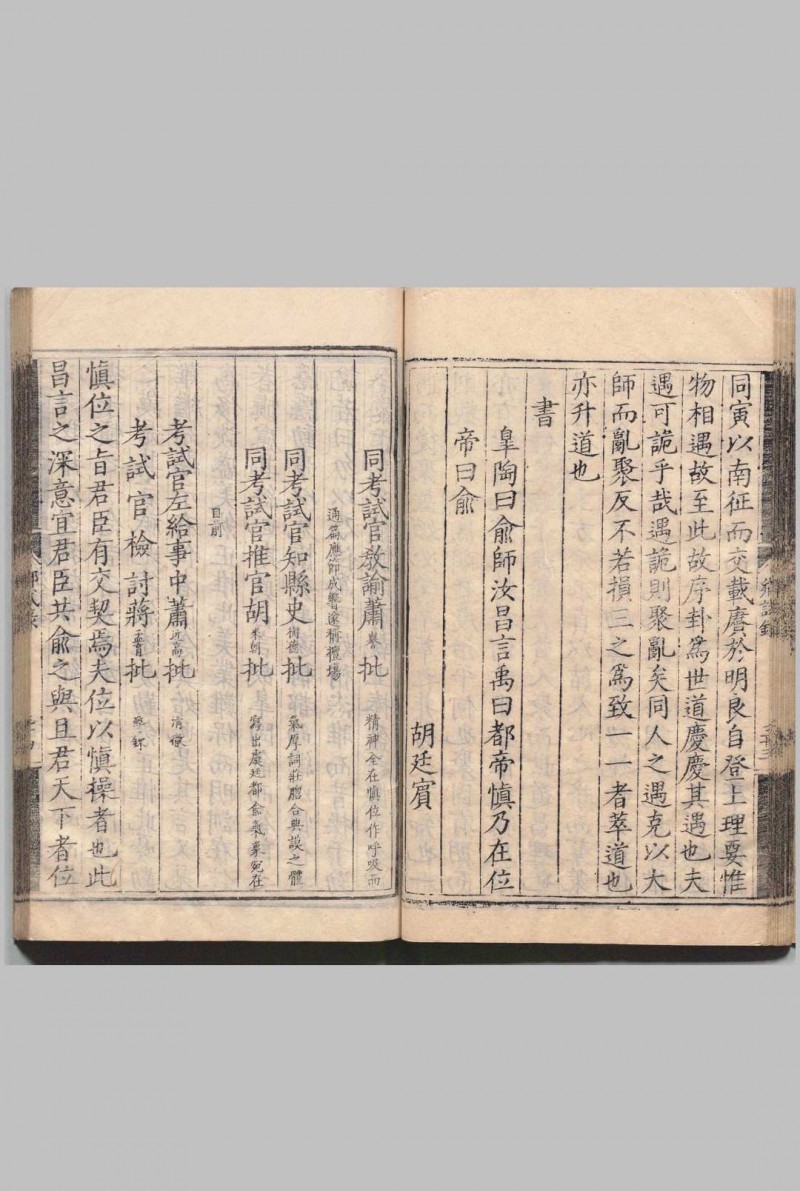 同寅以南征而交載賡於明良自登上理要惟
物相遇故至此故序卦爲世道慶慶其遇也夫
遇可詭乎哉遇詭則聚亂矣同人之遇克以大
師而亂聚反不若損三之爲致一一者萃道也
亦升道也
書
皐陶曰俞師汝昌言禹曰都帝慎乃在位
帝曰俞
胡廷賓
同考試官教諭蕭譽批 精神全在慎位作呼吸而
通篇應節成響遂稱擅場
同考試官知縣史 批 氣厚詞莊脗合典謨之體
同考試官推官胡 批 寫出虞廷都俞氣象宛在
目前
考試官左給事中蕭近高批 清
考試官檢討蔣孟育批
慎位之旨君臣有交契焉夫位以慎操者也此
昌言之深意宜君臣共俞之與且君天下者位